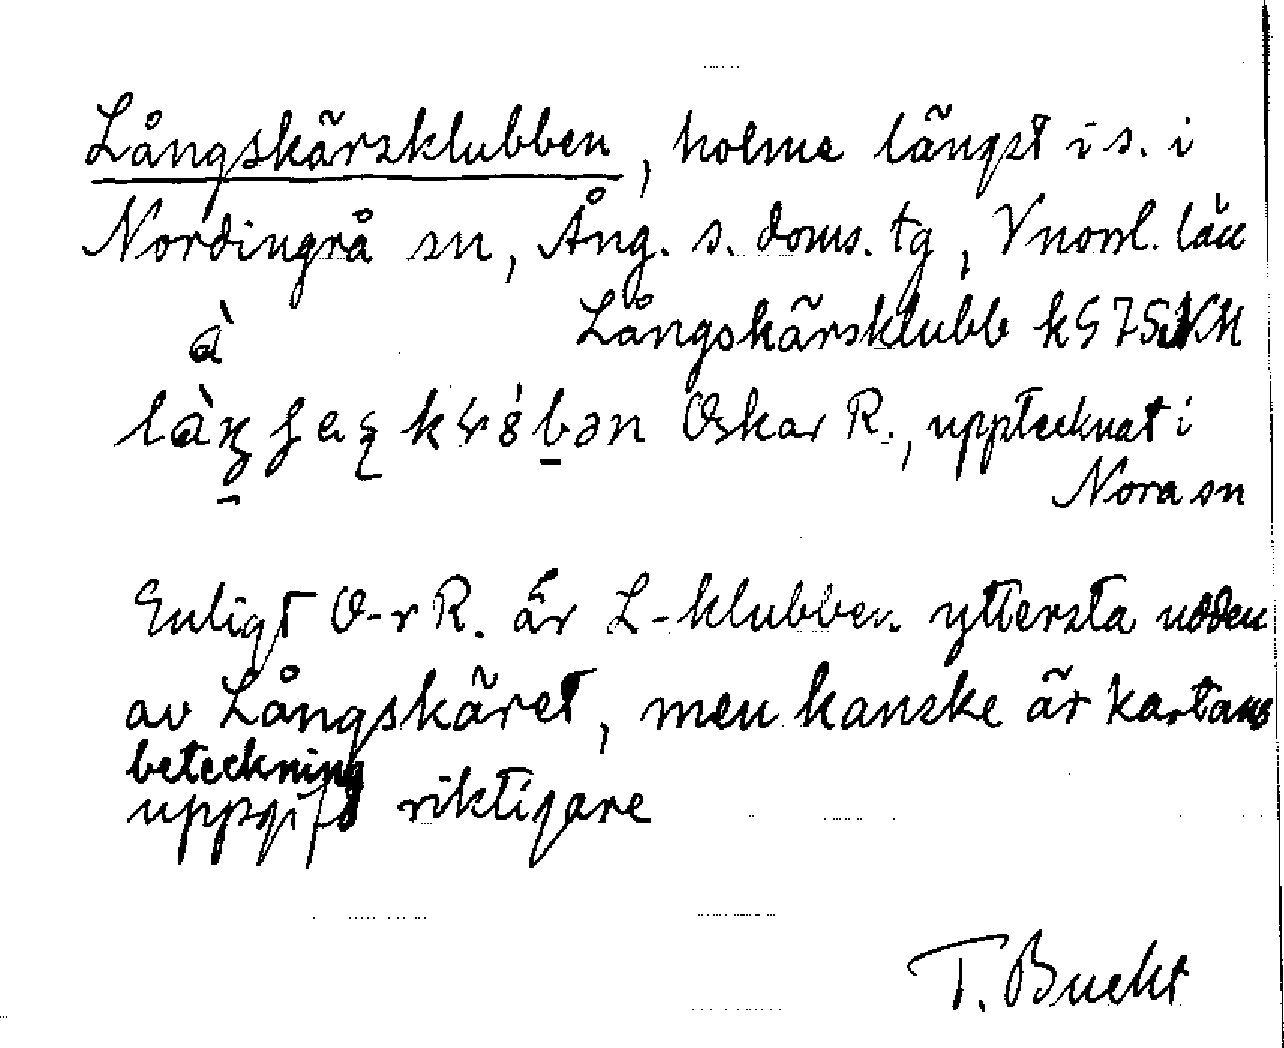 Långskärsklubben, holme längst i s. i
Nordingrå sn, Ång. s. doms. tg, Vnorrl. län
à Långskärsklubb k 5 75 NK
Oskar R., upptecknat i
Nora sn
Enligt O-r R. är L-klubben yttersta udden
av Långskäret, men kanske är kartans
beteckning
uppgift riktigare
T. Bucht